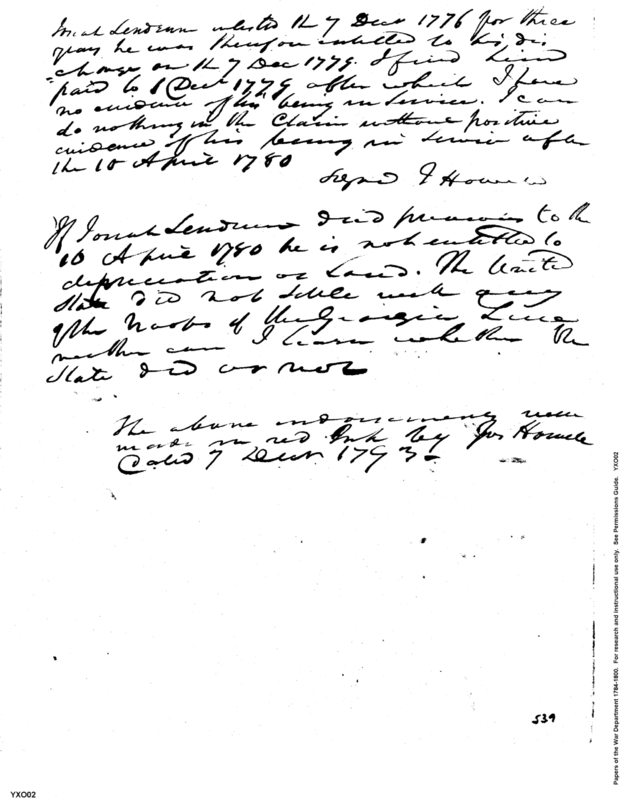 Josiah Lendrum inlisted the 7 Decr 1776 for three
years he was therefore entitled to his dis
=charge on the 7 Dec 1779. I find him
paid to 1 Decr 1779 after which I have
no evidence of his being in Service. I can
do nothing in the Claim without positive
evidence of his being in Service after
the 10 April 1780
Signed J Howell
If Josiah Lendrum died previous to the
10 April 1780 he is not entitled to
depreciation or Land. The United
State did not settle with any
of the Troops of the Georgia Line
neither can I learn whether the
State did or not
The above indorsements were
made in red Ink by Jos Howell
Dated 7 Decr 1793 -
539
YXO02
Papers of the War Department 1784-1800. For research and instructional use only. See Permissions Guide. YXO02